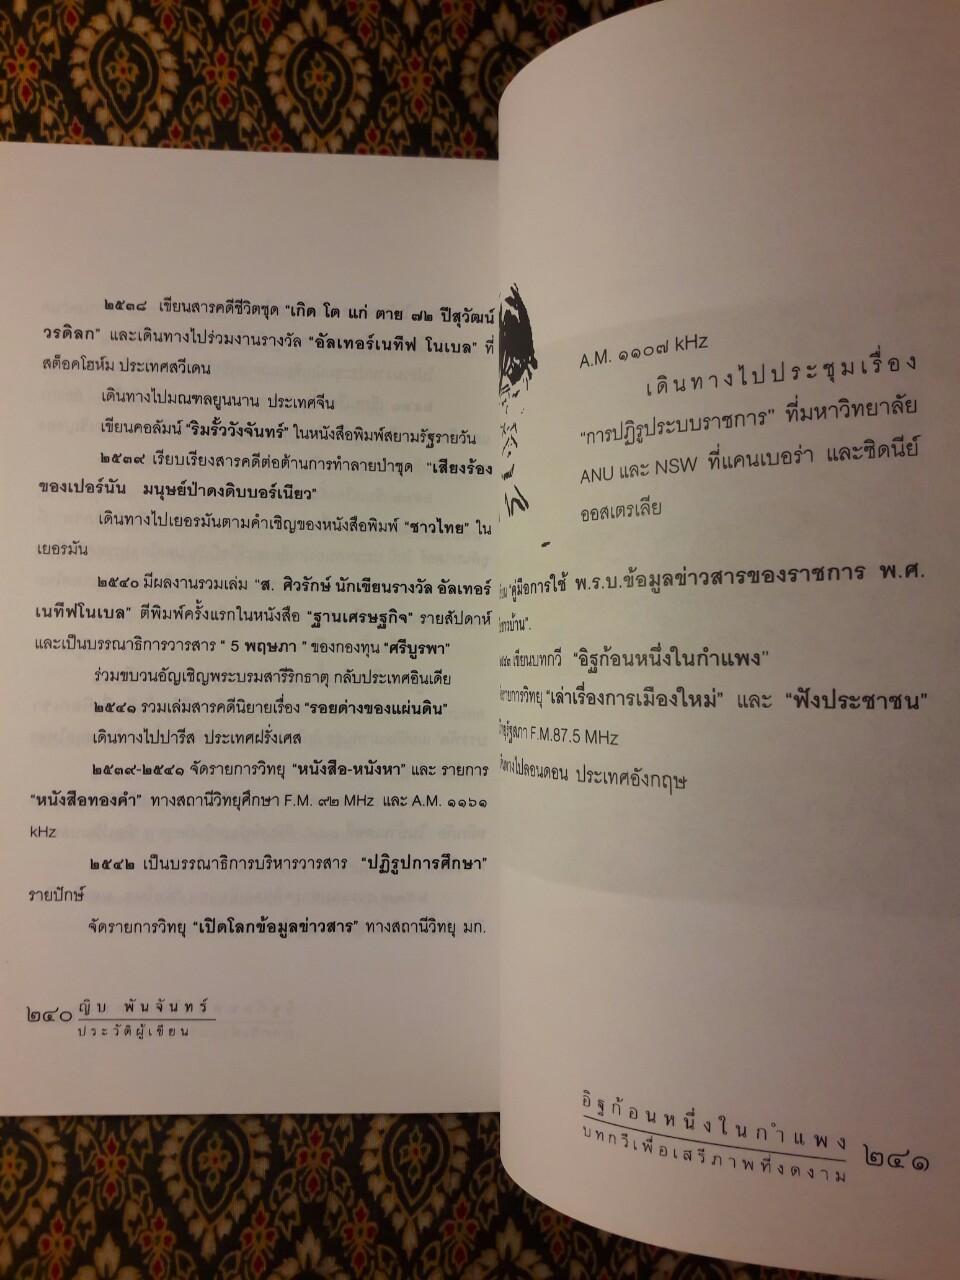 ๒๕๓๘ เขียนสารคดีชีวิตชุด "เกิด โต แก่ ตาย ๗๒ ปีสุวัฒน์
วรดิลก" และเดินทางไปร่วมงานรางวัล "อัลเทอร์เนทีฟ โนเบล" ที่
สต็อคโฮห์ม ประเทศสวีเดน
เดินทางไปมณฑลยูนนาน ประเทศจีน
เขียนคอลัมน์ "ริมรั้ววังจันทร์" ในหนังสือพิมพ์สยามรัฐรายวัน
๒๕๓๙ เรียบเรียงสารคดีต่อต้านการทำลายป่าชุด "เสียงร้อง
ของเปอร์นัน มนุษย์ป่าดงดิบบอร์เนียว"
เดินทางไปเยอรมันตามคำเชิญของหนังสือพิมพ์ "ชาวไทย" ใน
เยอรมัน
๒๕๔๐ มีผลงานรวมเล่ม "ส. ศิวรักษ์ นักเขียนรางวัล อัลเทอร์
เนทีฟโนเบล" ตีพิมพ์ครั้งแรกในหนังสือ "ฐานเศรษฐกิจ" รายสัปดาห์
และเป็นบรรณาธิการวารสาร " 5 พฤษภา " ของกองทุน "ศรีบูรพา"
ร่วมขบวนอัญเชิญพระบรมสารีริกธาตุ กลับประเทศอินเดีย
๒๕๔๑ รวมเล่มสารคดีนิยายเรื่อง "รอยด่างของแผ่นดิน"
เดินทางไปปารีส ประเทศฝรั่งเศส
๒๕๓๙-๒๕๔๑ จัดรายการวิทยุ "หนังสือ-หนังหา" และ รายการ
"หนังสือทองคำ" ทางสถานีวิทยุศึกษา F.M. ๙๒ MHz และ A.M. ๑๑๖๑
kHz
๒๕๔๒ เป็นบรรณาธิการบริหารวารสาร "ปฏิรูปการศึกษา"
รายปักษ์
จัดรายการวิทยุ "เปิดโลกข้อมูลข่าวสาร" ทางสถานีวิทยุ มก.
๒๔๐ ญิบ พันจันทร์
ประวัติผู้เขียน
A.M. ๑๑๐๗ kHz
เดินทางไปประชุมเรื่อง
"การปฏิรูประบบราชการ" ที่มหาวิทยาลัย
ANU และ NSW ที่แคนเบอร่า และซิดนีย์
ออสเตรเลีย
"คู่มือการใช้ พ.ร.บ.ข้อมูลข่าวสารของราชการ พ.ศ.
เขียนบทกวี "อิฐก้อนหนึ่งในกำแพง"
"เล่าเรื่องการเมืองใหม่" และ "ฟังประชาชน"
F.M.87.5 MHz
ประเทศอังกฤษ
อิฐก้อนหนึ่งในกำแพง ๒๔๑
บทกวีเพื่อเสรีภาพที่งดงาม